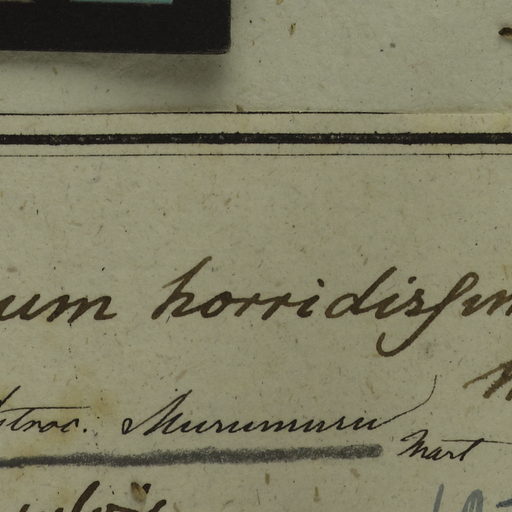 um horridissim
stroc. Murumuru
Mart